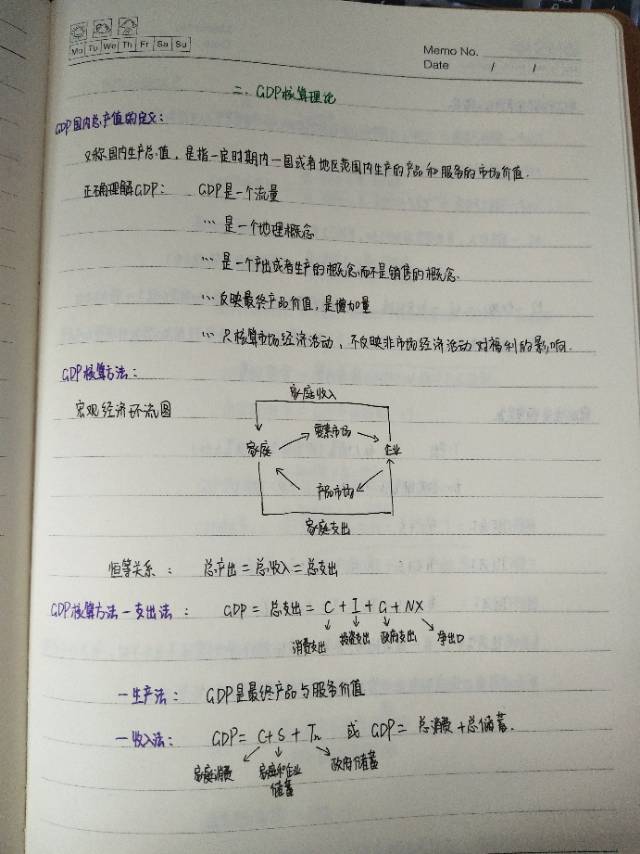 Mo Tu We Th Fr Sa Su
Memo No.
Date / /
二、GDP核算理论
GDP国内总产值的定义：
又称国内生产总值，是指一定时期内一国或者地区范围内生产的产品和服务的市场价值.
正确理解GDP： GDP是一个流量
… 是一个地理概念
… 是一个产出或者生产的概念而不是销售的概念.
… 反映最终产品价值，是增加量
… 只核算市场经济活动，不反映非市场经济活动对福利的影响.
GDP核算方法：
家庭收入
宏观经济环流图
要素市场
家庭 企业
产品市场
家庭支出
恒等关系： 总产出=总收入=总支出
GDP核算方法-支出法： GDP = 总支出 = C + I + G + NX
消费支出 投资支出 政府支出 净出口
-生产法： GDP是最终产品与服务价值
-收入法： GDP = C + S + Tn 或 GDP = 总消费+总储蓄.
家庭消费 家庭和企业 政府储蓄
储蓄